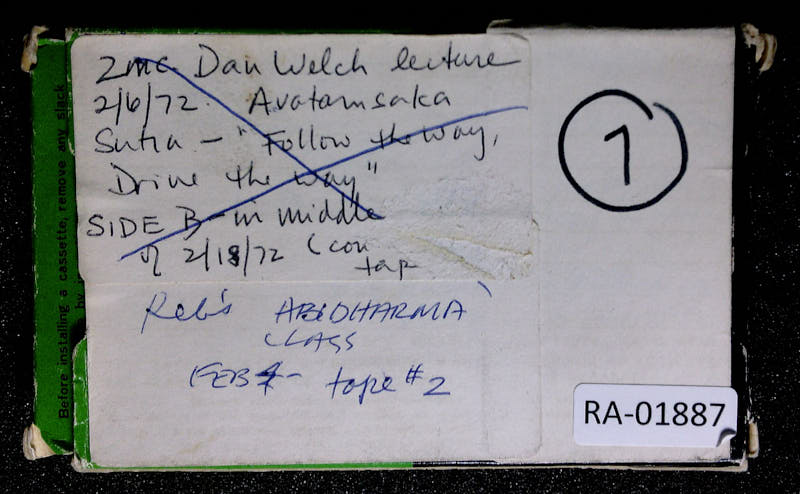 Before installing a cassette, remove any slack
zmc Dan Welch lecture
2/6/72. Avatamsaka
Sutra - "Follow the way,
Drive the way"
SIDE B - in middle
of 2/18/72 (con
tap
Reb's ABIDHARMA
CLASS
FEB - tape #2
1
RA-01887